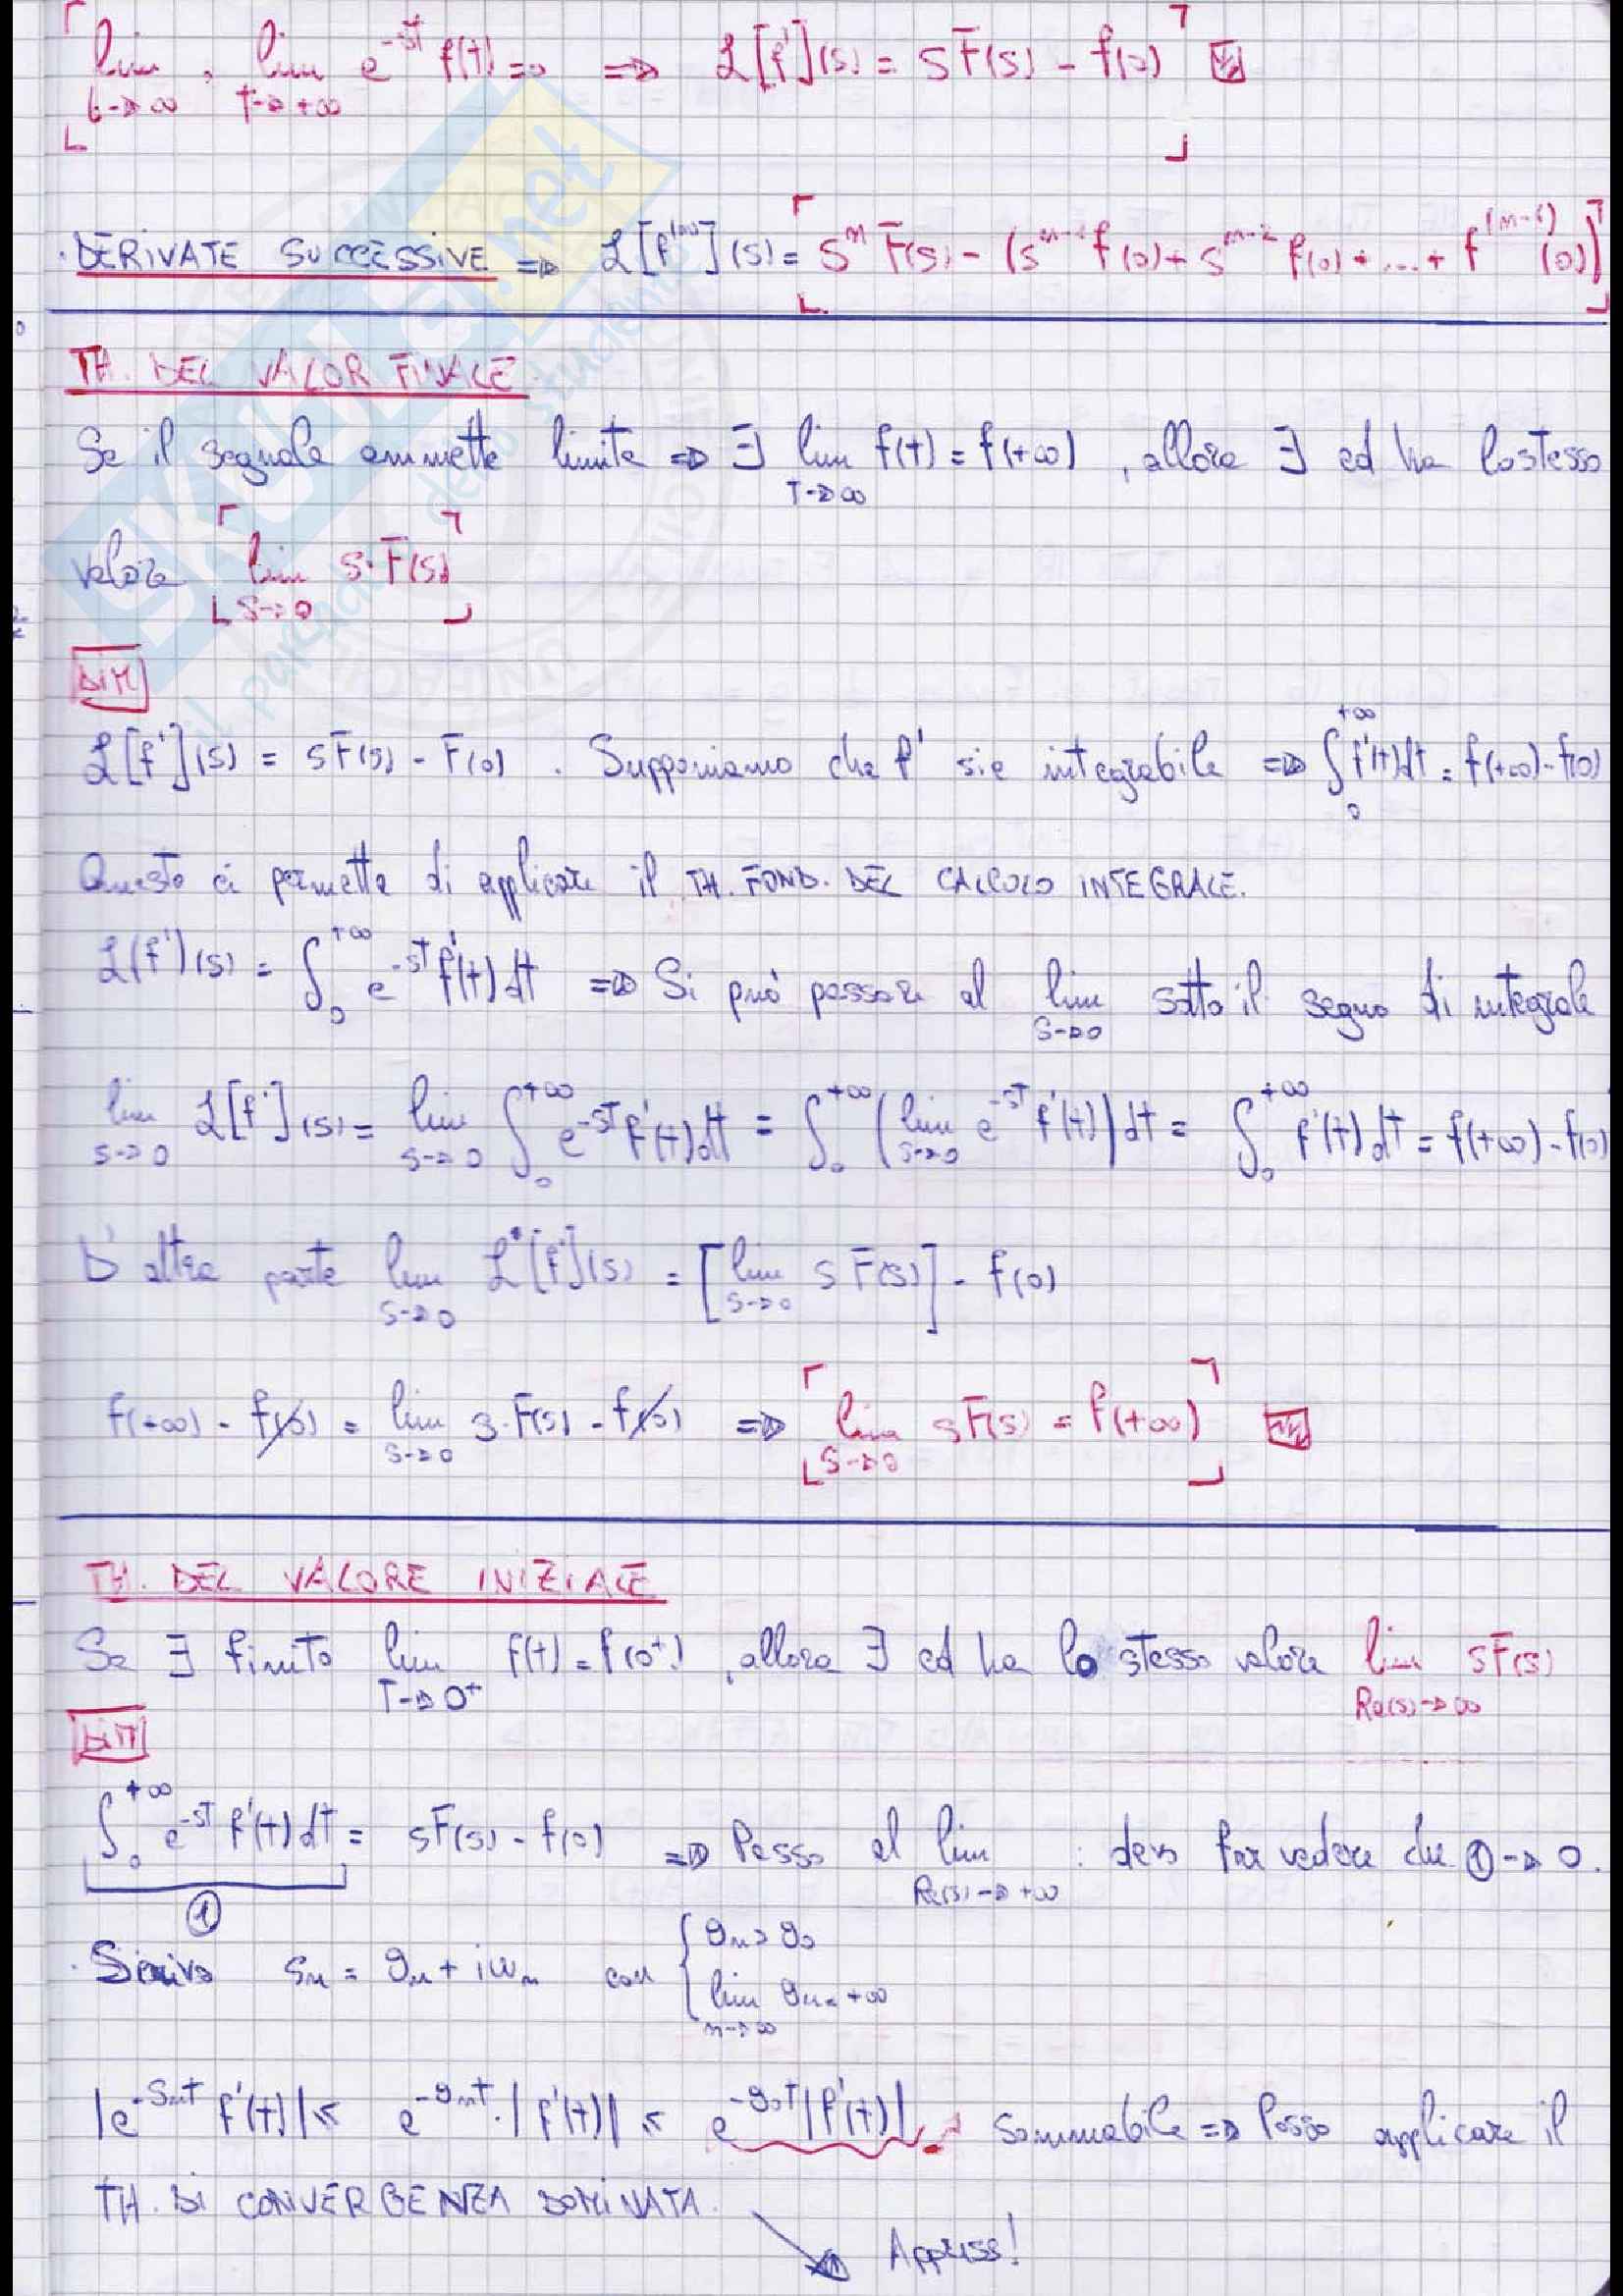 lim , lim e^-st f(t) = 0 => L[f'](s) = sF(s) - f(0)
t->∞ T->+∞
· DERIVATE SUCCESSIVE => L[f^(n)](s) = s^n F(s) - (s^n-1 f(0) + s^n-2 f(0) + ... + f^(n-1)(0))
TH. DEL VALOR FINALE
Se il segnale ammette limite => ∃ lim f(t) = f(+∞) , allora ∃ ed ha lo stesso
T->∞
valore lim s·F(s)
s->0
DIM
L[f'](s) = sF(s) - F(0) . Supponiamo che f' sia integrabile => ∫_0^+∞ f'(t)dt = f(+∞) - f(0)
Questo ci permette di applicare il TH. FOND. DEL CALCOLO INTEGRALE.
L(f')(s) = ∫_0^+∞ e^-sT f'(t)dt => Si può passare al lim sotto il segno di integrale
s->0
lim L[f'](s) = lim ∫_0^+∞ e^-sT f'(t)dt = ∫_0^+∞ (lim e^-sT f'(t))dt = ∫_0^+∞ f'(t)dt = f(+∞) - f(0)
s->0 s->0 s->0
D'altra parte lim L[f'](s) = [lim s F(s)] - f(0)
s->0 s->0
f(+∞) - f(0) = lim s·F(s) - f(0) => lim sF(s) = f(+∞)
s->0 s->0
TH. DEL VALORE INIZIALE
Se ∃ finito lim f(t) = f(0+) , allora ∃ ed ha lo stesso valore lim sF(s)
T->0+ Re(s)->∞
DIM
∫_0^+∞ e^-sT f'(t)dt = sF(s) - f(0) => Passo al lim : devo far vedere che ①->0.
① Re(s)->+∞
· Scrivo Sn = σn + iωn con { σn > σ0
lim σn = +∞
n->∞
|e^-SnT f'(t)| ≤ e^-σnT · |f'(t)| ≤ e^-σ0T |f'(t)| Sommabile => Posso applicare il
TH. DI CONVERGENZA DOMINATA.
SKUOLA.net
il paradiso dello studente